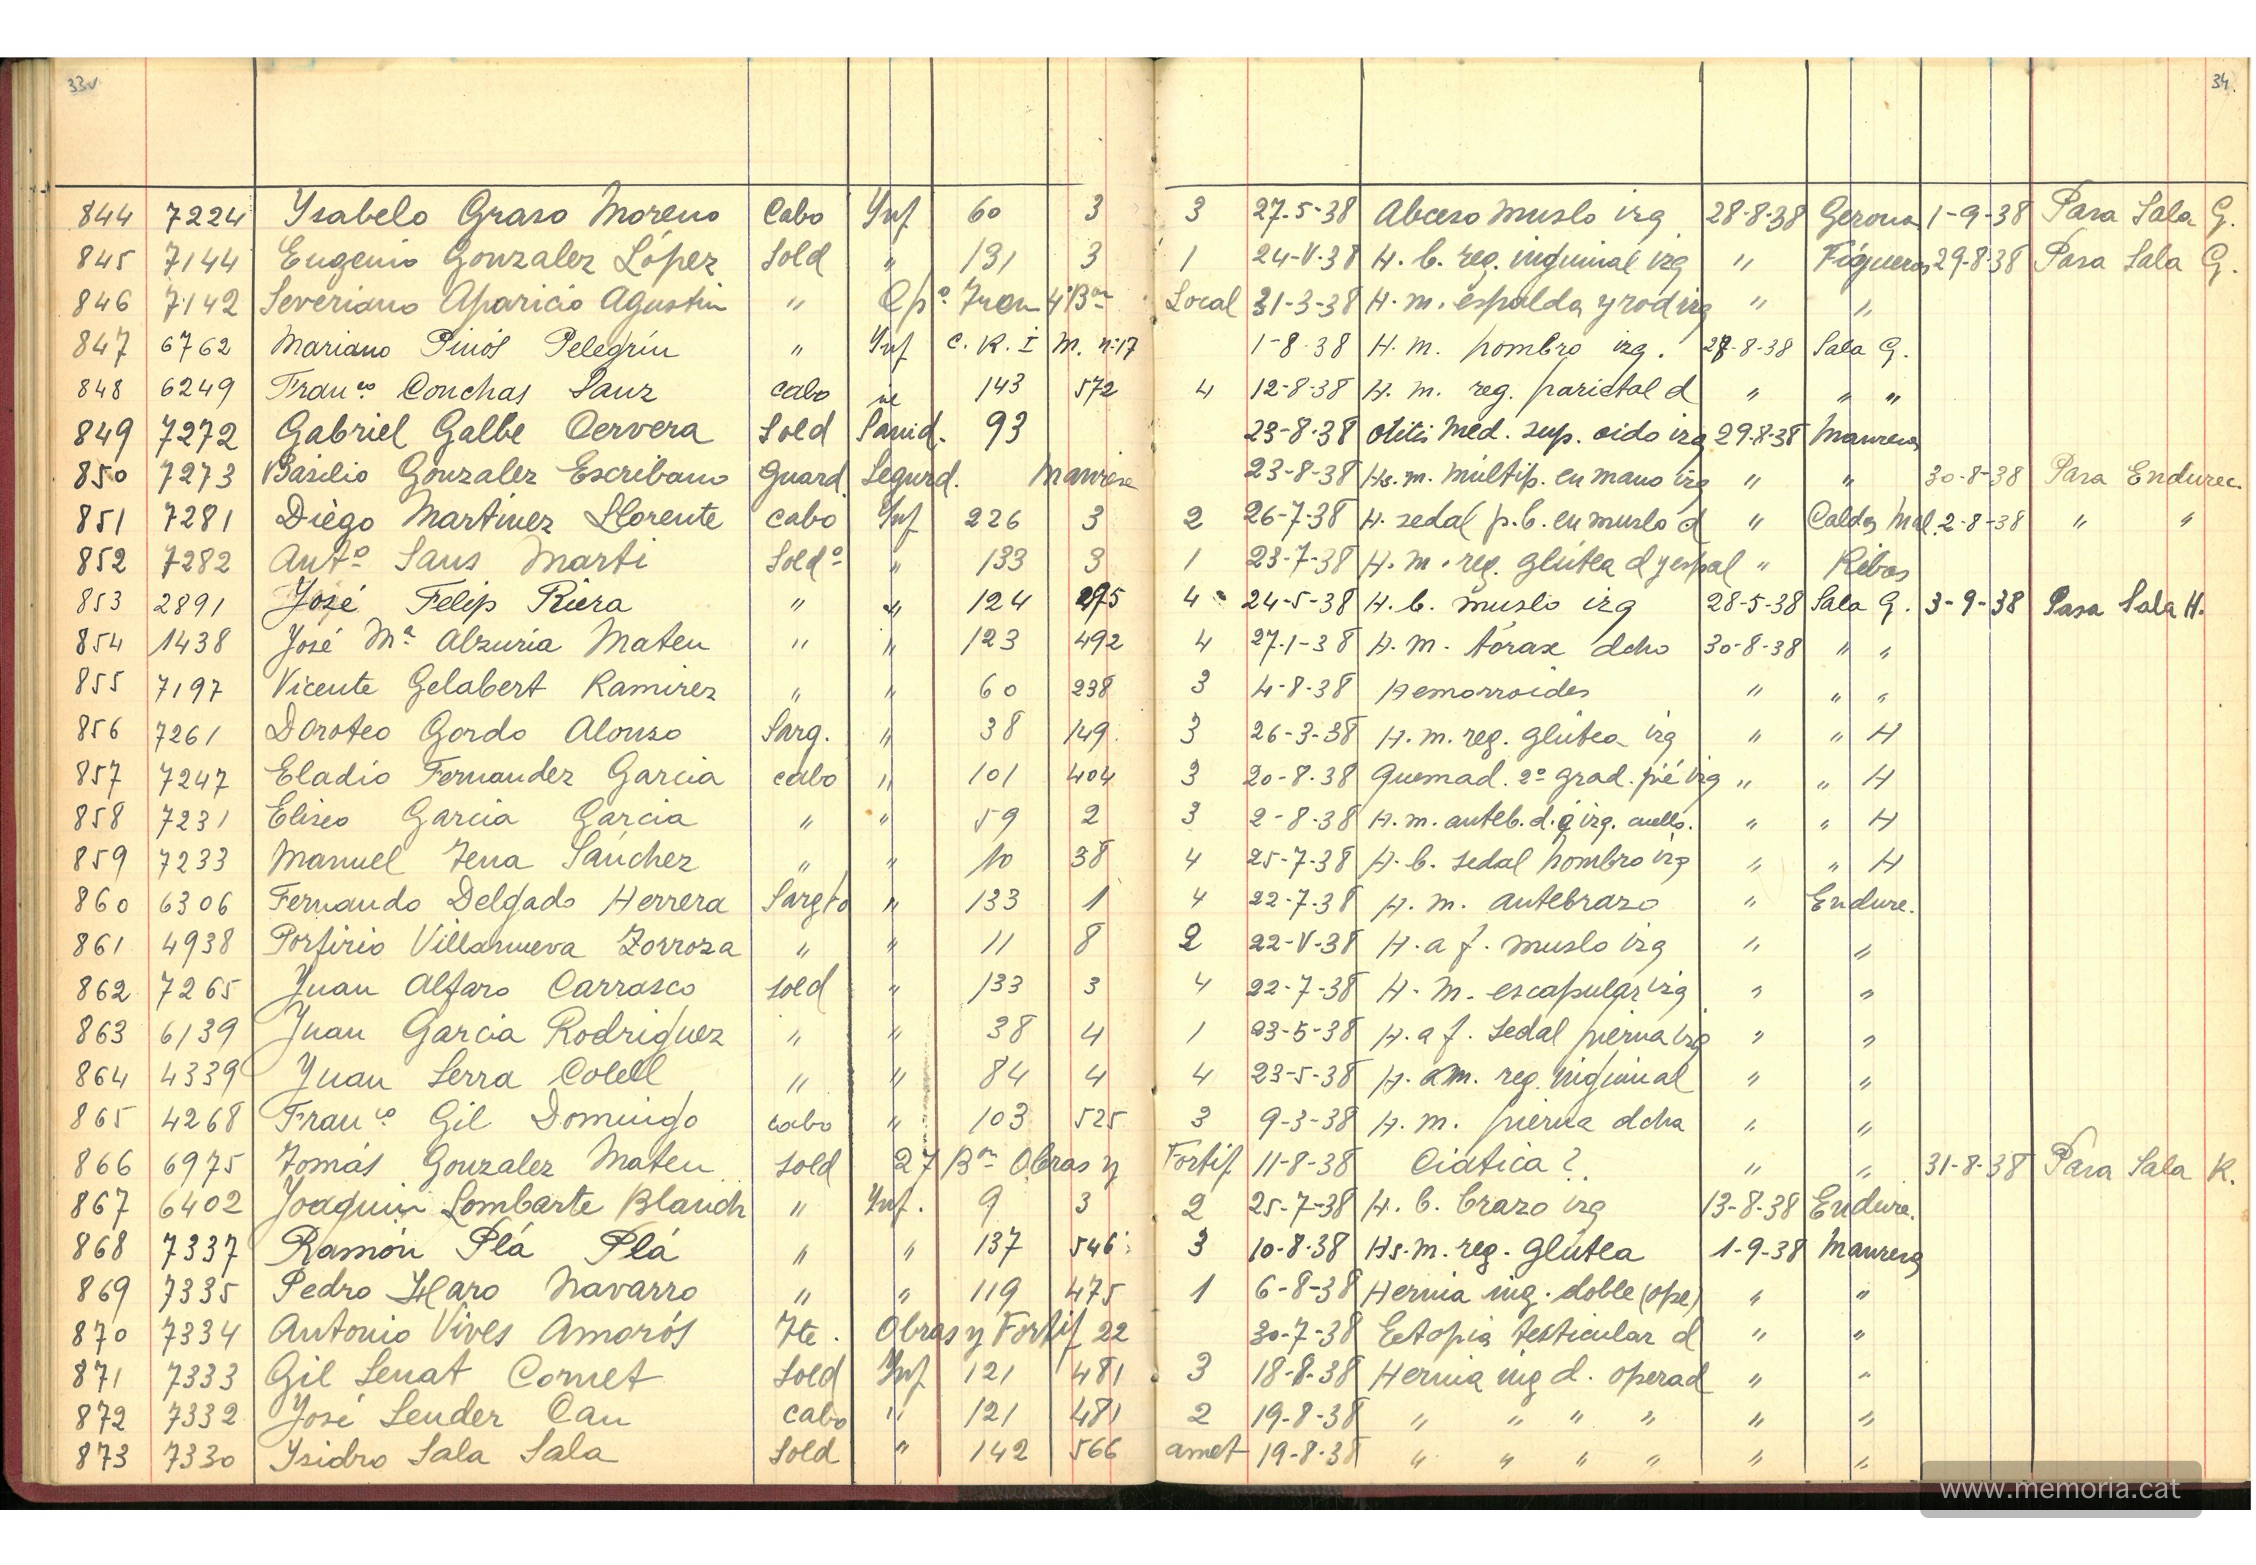 33v 34.
844 7224 Ysabelo Graso Moreno Cabo Ynf 60 3 3 27-5-38 Abceso muslo izq 28-8-38 Gerona 1-9-38 Pasa Sala G.
845 7144 Eugenio Gonzalez López Sold " 131 3 1 24-V-38 H. b. reg. inguinal izq " Figueras 29-8-38 Pasa Sala G.
846 7142 Severiano Aparicio Agustin " Cpº Tren 4º Bon Local 31-3-38 H. m. espalda y rod izq " "
847 6762 Mariano Pinós Pelegrín " Ynf C. R. I M. nº 17 1-8-38 H. m. hombro izq. 28-8-38 Sala G.
848 6249 Franco Conchas Sanz cabo 143 572 4 12-8-38 H. m. reg. parietal d " " "
849 7272 Gabriel Galbe Cervera Sold Sanid. 93 23-8-38 Otitis Med. sup. oido izq 29-8-38 Manresa
850 7273 Basilio Gonzalez Escribano Guard. Segurd. Manresa 23-8-38 Hs. m. múltip. en mano izq " " 30-8-38 Pasa Endurec.
851 7281 Diego Martinez Llorente cabo Ynf 226 3 2 26-7-38 H. sedal p. b. en muslo d " Caldas Mal. 2-8-38 " "
852 7282 Antº Sans Marti Soldº " 133 3 1 23-7-38 H. m. reg. glútea d y espal " Ribas
853 2891 José Felip Riera " " 124 495 4 24-5-38 H. b. muslo izq 28-5-38 Sala G. 3-9-38 Pasa Sala H.
854 1438 José Mª Alzuria Mateu " " 123 492 4 27-1-38 H. m. tórax dcho 30-8-38 " "
855 7197 Vicente Gelabert Ramirez " " 60 238 3 4-8-38 Hemorroides " " "
856 7261 Doroteo Gordo Alonso Sarg. " 38 149. 3 26-3-38 H. m. reg. glútea izq " " H
857 7247 Eladio Fernandez Garcia cabo " 101 404 3 20-8-38 Quemad. 2º grad. pié izq " " H
858 7231 Eliseo Garcia Garcia " " 59 2 3 2-8-38 H. m. anteb. d. é izq. cuello. " " H
859 7233 Manuel Tena Sánchez " " 10 38 4 25-7-38 H. b. sedal hombro izq " " H
860 6306 Fernando Delgado Herrera Sargto " 133 1 4 22-7-38 H. m. antebrazo " Endure.
861 4938 Porfirio Villanueva Zorroza " " 11 8 2 22-V-38 H. a f. muslo izq " "
862 7265 Juan Alfaro Carrasco sold " 133 3 4 22-7-38 H. m. escapular izq " "
863 6139 Juan Garcia Rodriguez " " 38 4 1 23-5-38 H. a f. sedal pierna izq " "
864 4339 Juan Serra Colell " " 84 4 4 23-5-38 H. m. reg. inguinal " "
865 4268 Franco Gil Domingo cabo " 103 525 3 9-3-38 H. m. pierna dcha " "
866 6975 Tomás Gonzalez Mateu sold 27 Bon Obras y Fortif 11-8-38 Ciática? " " 31-8-38 Pasa Sala K.
867 6402 Joaquin Lombarte Blanch " Ynf. 9 3 2 25-7-38 H. b. brazo izq 13-8-38 Endure.
868 7337 Ramón Plá Plá " " 137 546 3 10-8-38 Hs. m. reg. glútea 1-9-38 Manresa
869 7335 Pedro Haro Navarro " " 119 475 1 6-8-38 Hernia ing. doble (ope) " "
870 7334 Antonio Vives Amorós Tte. Obras y Fortif 22 30-7-38 Ectopia testicular d " "
871 7333 Gil Senat Cornet Sold Ynf 121 481 3 18-8-38 Hernia ing d. operad " "
872 7332 José Sender Cau cabo " 121 481 2 19-8-38 " " " " " "
873 7330 Ysidro Sala Sala Sold " 142 566 amet 19-8-38 " " " " " "
www.memoria.cat